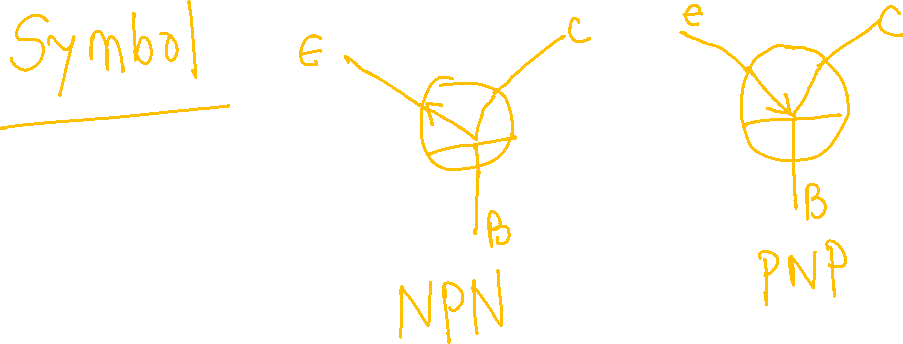 Symbol
E C
B
NPN
e C
B
PNP